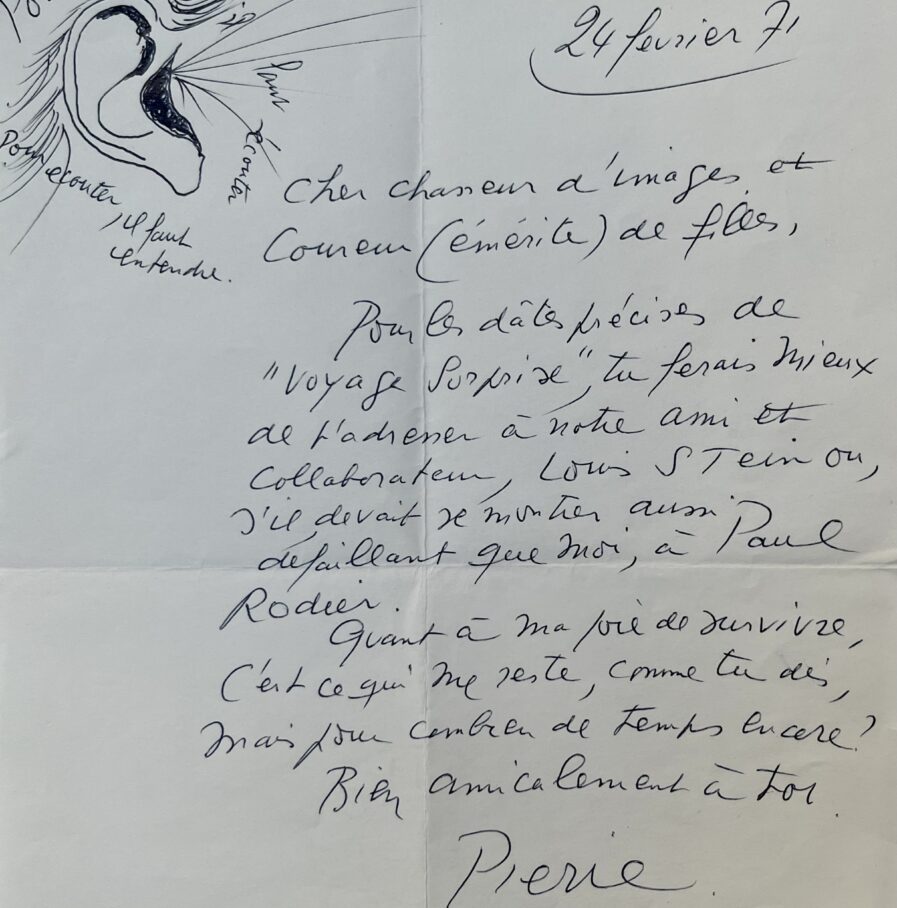 24 février 71
il
faut
écouter
Pour écouter,
il faut
entendre.
Cher chasseur d'images et
Coureur (émérite) de filles,
Pour les dâtes précises de
"Voyage Surprise", tu ferais mieux
de t'adresser à notre ami et
collaborateur, Louis STein ou,
s'il devait se montrer aussi
défaillant que moi, à Paul
Rodier.
Quant à ma joie de survivre,
C'est ce qui me reste, comme tu dis,
mais pour combien de temps encore?
Bien amicalement à toi.
Pierre.